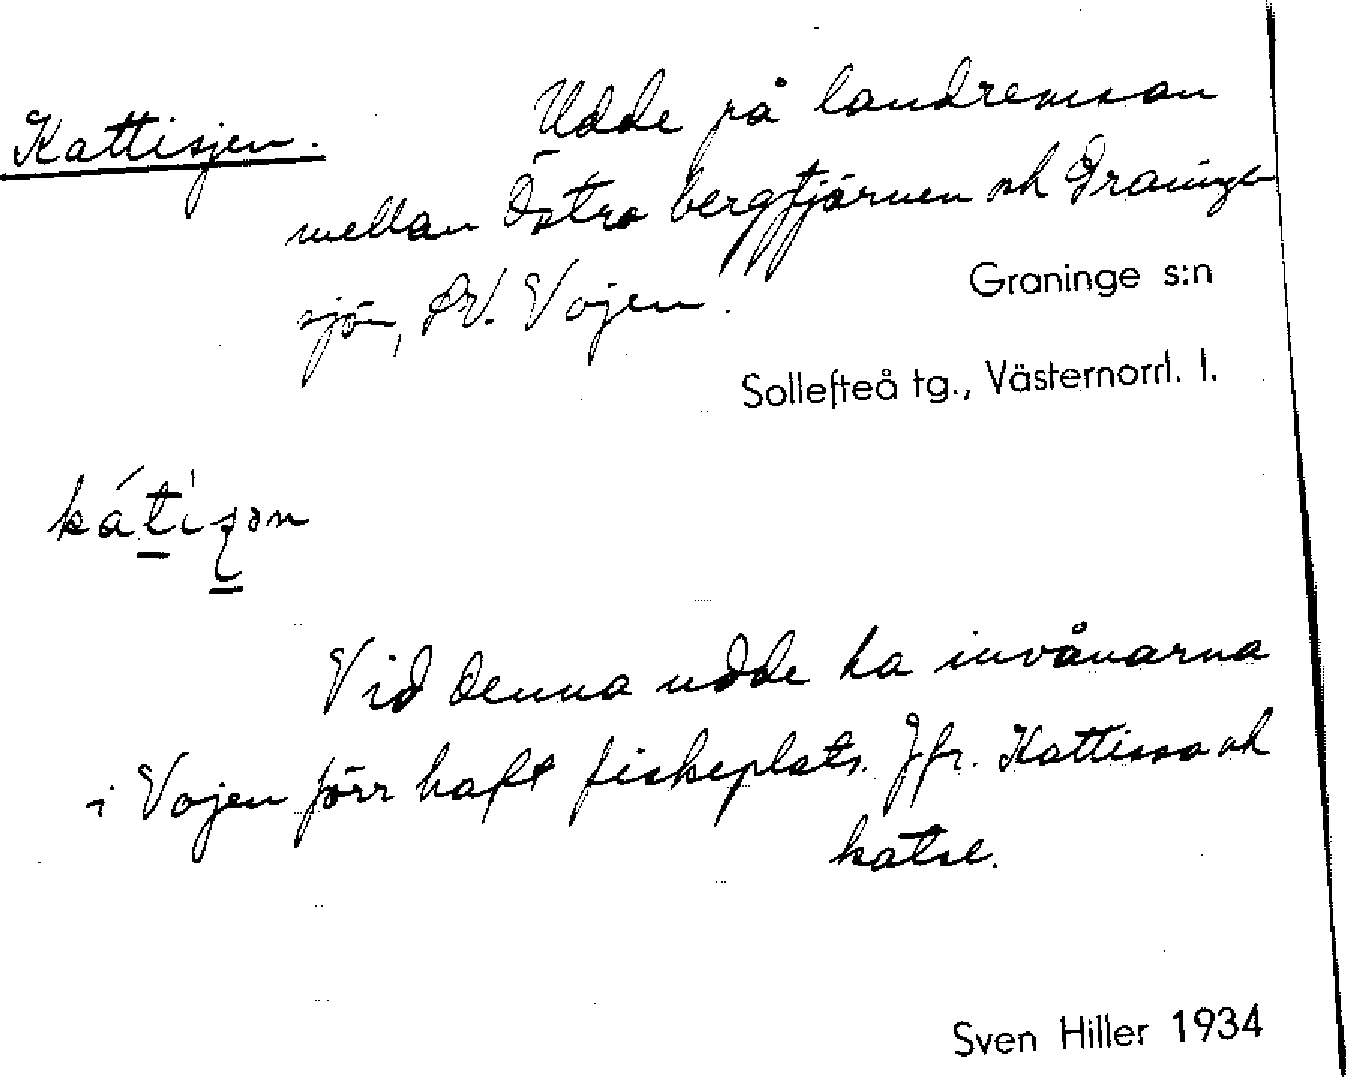 Kattisjen. Udde på landremsan
mellan Östra bergtjärnen och Graninge
sjön, SV. Vojen.
Graninge s:n
Sollefteå tg., Västernorrl. l.
Vid denna udde ha invånarna
i Vojen förr haft fiskeplats. Jfr. Kattissa och
katse.
Sven Hiller 1934